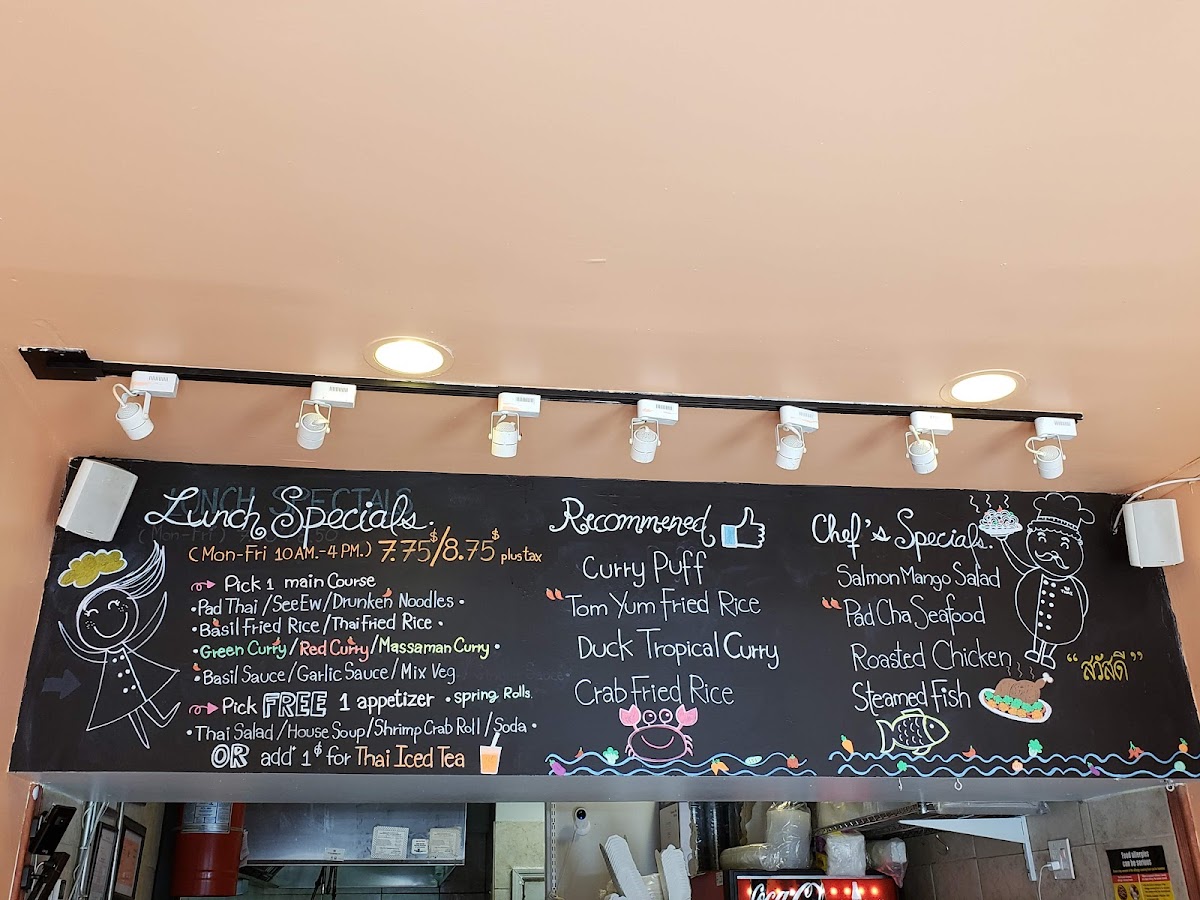 LUNCH SPECIALS
Lunch Specials.
(Mon-Fri 10 AM.-4 PM.) 7.75$/8.75$ plus tax
Pick 1 main Course
•Pad Thai/SeeEw/Drunken Noodles•
•Basil Fried Rice/Thai Fried Rice•
•Green Curry/Red Curry/Massaman Curry•
•Basil Sauce/Garlic Sauce/Mix Veg
Pick FREE 1 appetizer •spring Rolls.
•Thai Salad/House Soup/Shrimp Crab Roll/Soda•
OR add 1$ for Thai Iced Tea
Recommened
Curry Puff
Tom Yum Fried Rice
Duck Tropical Curry
Crab Fried Rice
Chef's Specials.
Salmon Mango Salad
Pad Cha Seafood
Roasted Chicken
Steamed Fish
"สวัสดี"
Coca-Co
Food allergies
can be serious